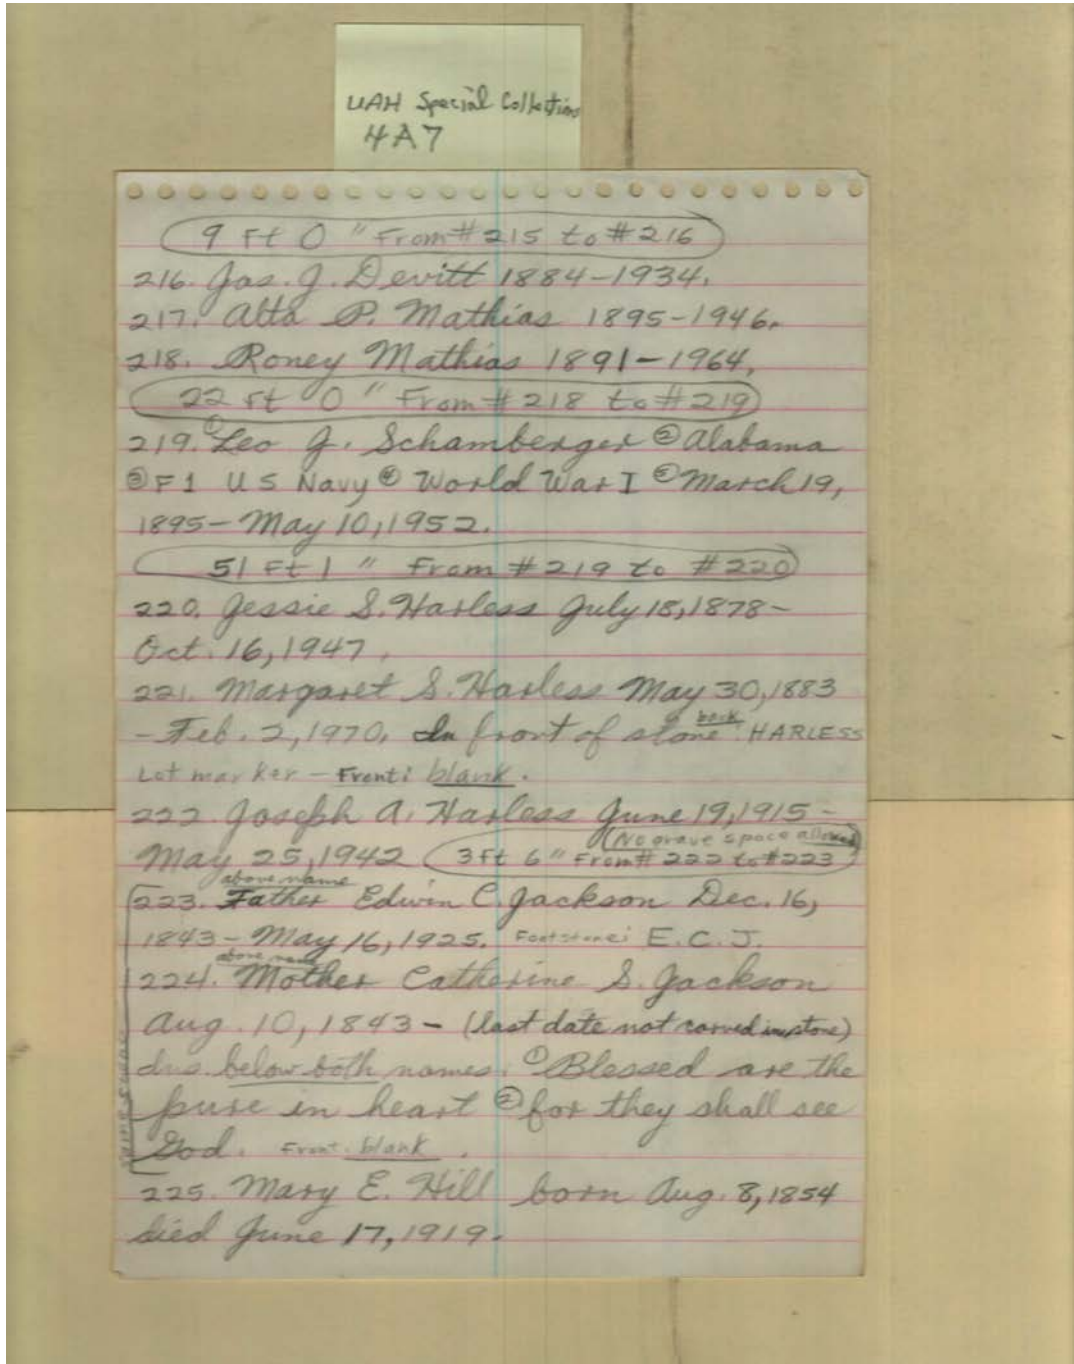 UAH Special Collections
4A7
9 Ft 0 " From # 215 to # 216
216. Jas. J. Devitt 1884-1934.
217. Alta P. Mathias 1895-1946.
218. Roney Mathias 1891-1964.
22 Ft 0 " From # 218 to # 219
219. ① Leo J. Schamberger ② Alabama
③ F1 US Navy ④ World War I ⑤ March 19,
1895- May 10, 1952.
51 Ft 1 " From # 219 to # 220
220. Jessie S. Harless July 18, 1878-
Oct. 16, 1947.
221. Margaret S. Harless May 30, 1883
back
- Feb. 2, 1970. In front of stone: HARLESS
Lot marker - Front: blank.
222 Joseph A. Harless June 19, 1915 -
(No grave space allowed)
May 25, 1942 3 ft 6" From # 222 to # 223
above name
223. Father Edwin C. Jackson Dec. 16,
1843- May 16, 1925. Footstone: E.C.J.
above name
224. Mother Catherine S. Jackson
Aug. 10, 1843 - (last date not carved in stone)
below both names. ① Blessed are the
pure in heart ② for they shall see
God. Front: blank.
225. Mary E. Hill born Aug. 8, 1854
died June 17, 1919.